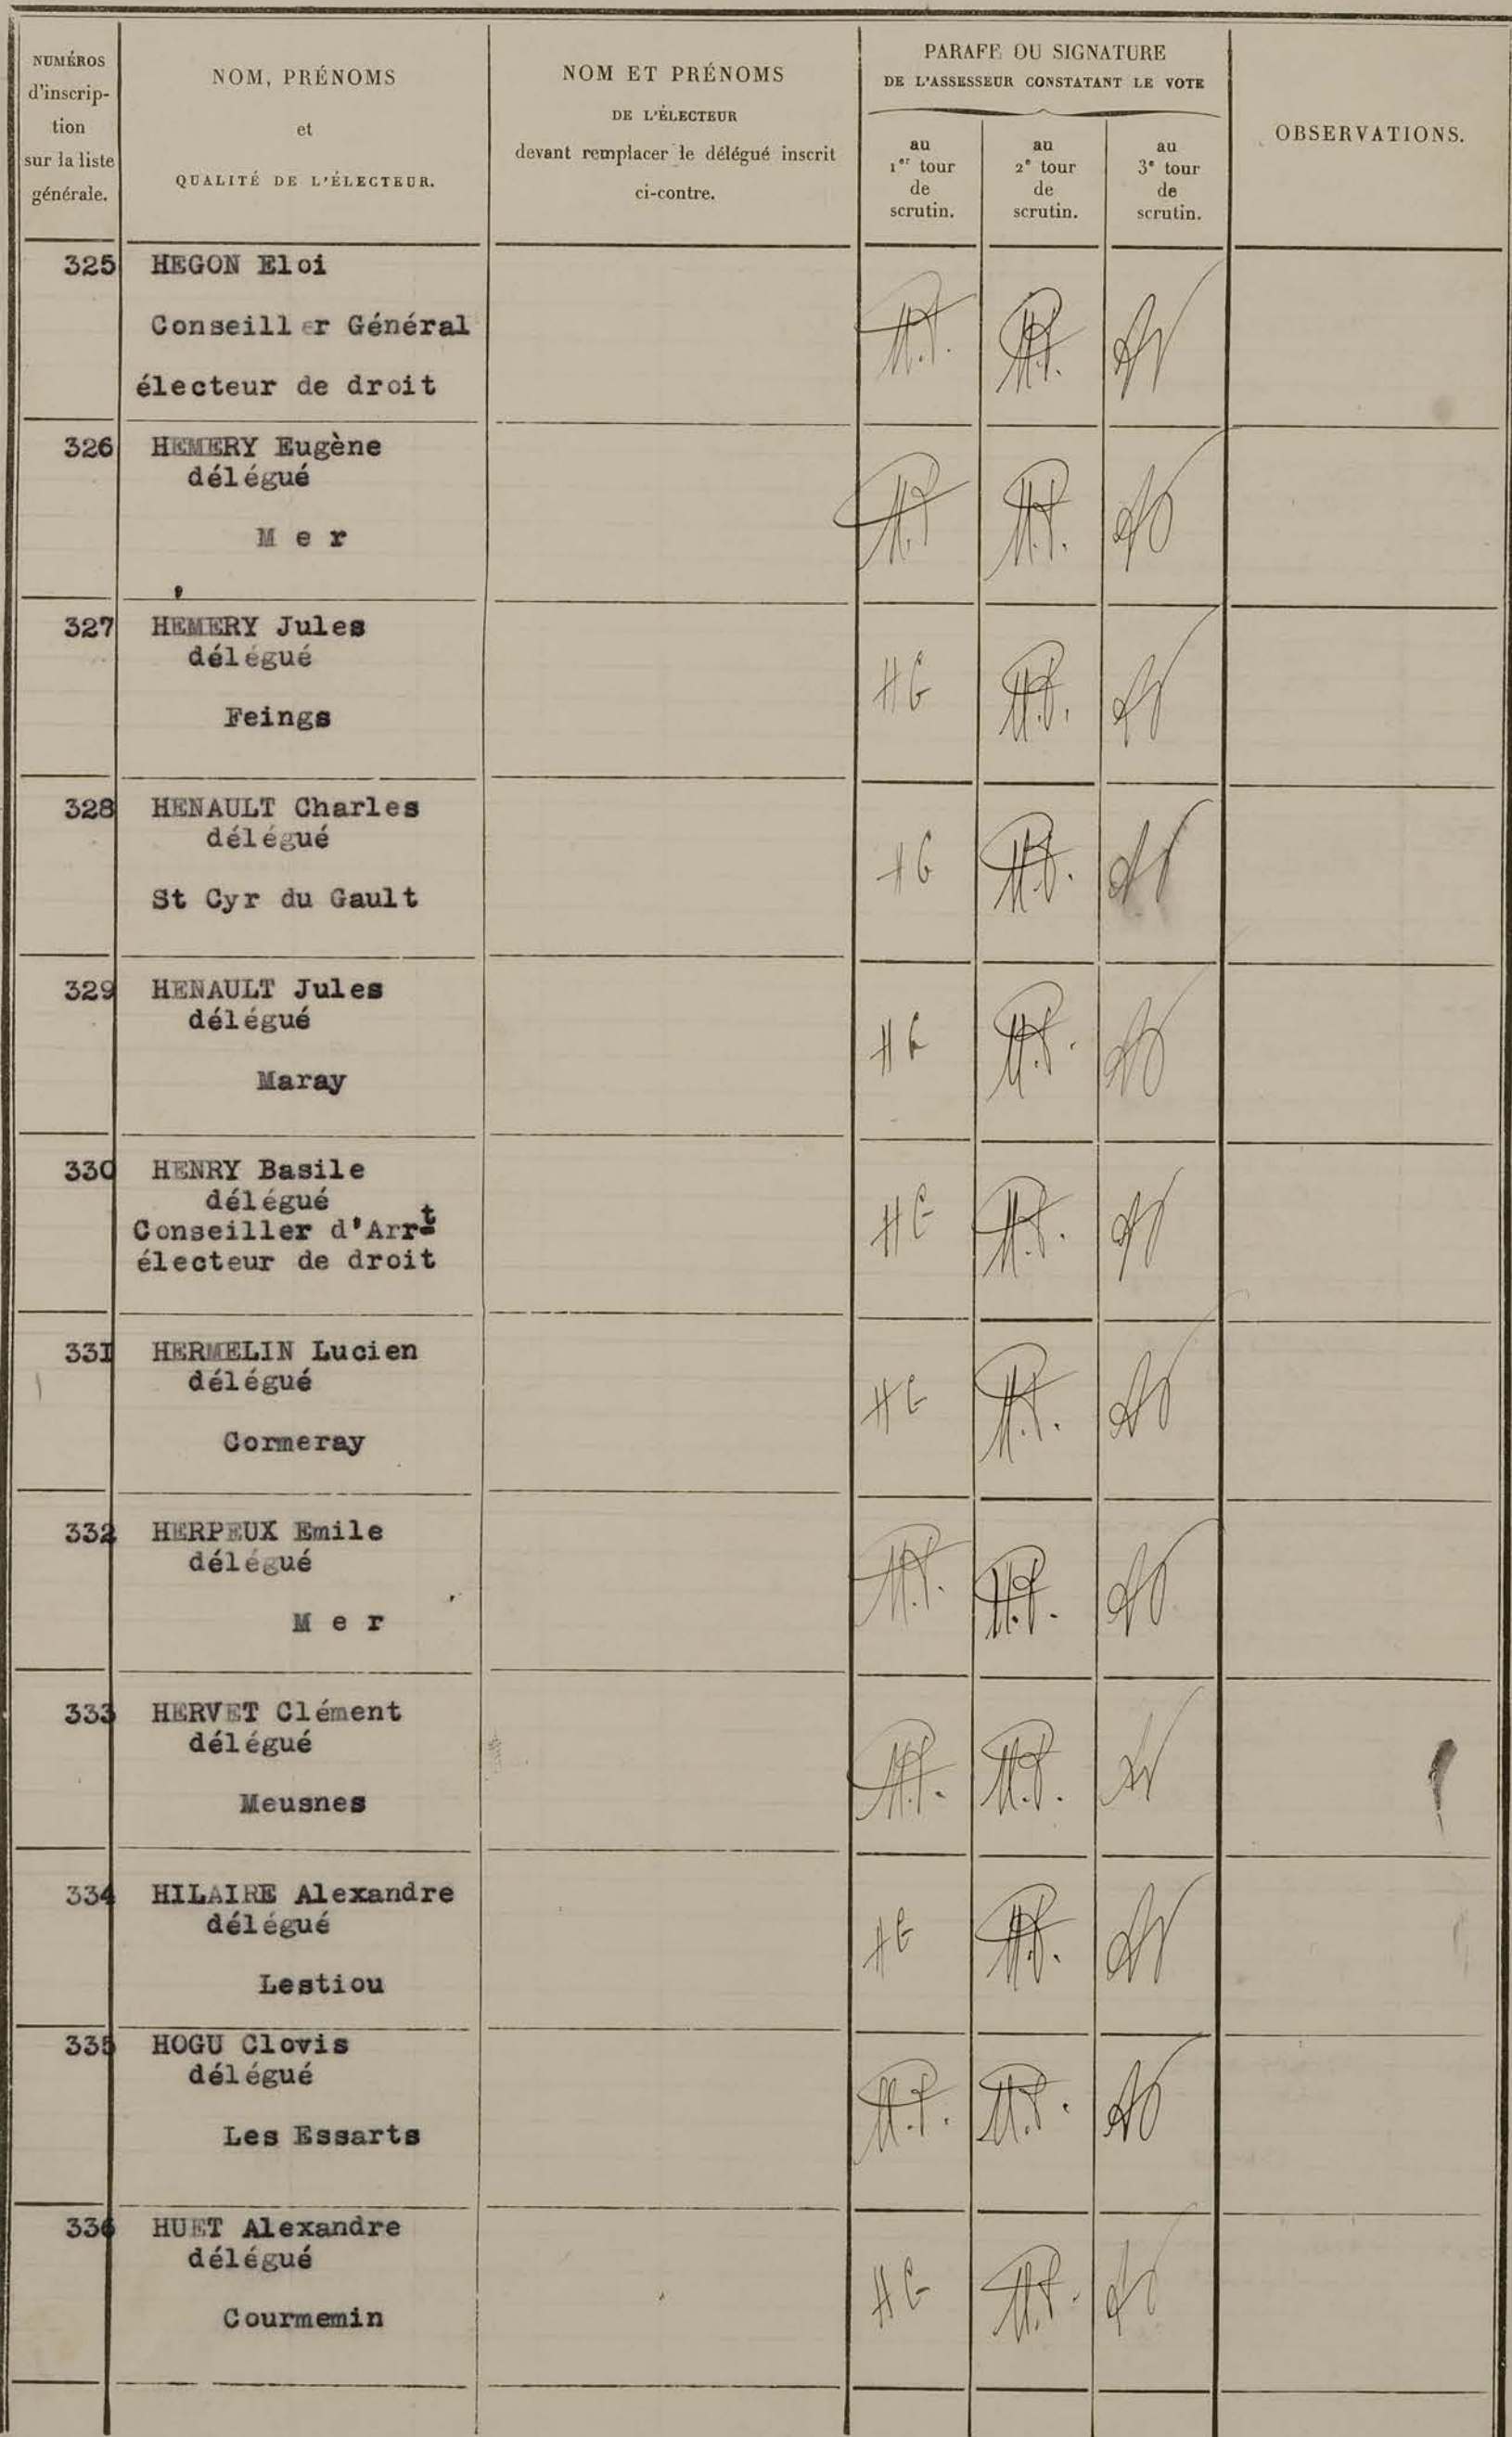 NUMÉROS
d'inscrip-
tion
sur la liste
générale.
NOM, PRÉNOMS
et
QUALITÉ DE L'ÉLECTEUR.
NOM ET PRÉNOMS
DE L'ÉLECTEUR
devant remplacer le délégué inscrit
ci-contre.
PARAFE OU SIGNATURE
DE L'ASSESSEUR CONSTATANT LE VOTE
au
1er tour
de
scrutin.
au
2e tour
de
scrutin.
au
3e tour
de
scrutin.
OBSERVATIONS.
325 HEGON Eloi
Conseiller Général
électeur de droit
326 HEMERY Eugène
délégué
M e r
327 HEMERY Jules
délégué
Feings
HG
328 HENAULT Charles
délégué
St Cyr du Gault
HG
329 HENAULT Jules
délégué
Maray
HG
330 HENRY Basile
délégué
Conseiller d'Arrt
électeur de droit
HG
331 HERMELIN Lucien
délégué
Cormeray
HG
332 HERPEUX Emile
délégué
M e r
333 HERVET Clément
délégué
Meusnes
334 HILAIRE Alexandre
délégué
Lestiou
HG
335 HOGU Clovis
délégué
Les Essarts
336 HUET Alexandre
délégué
Courmemin
HG